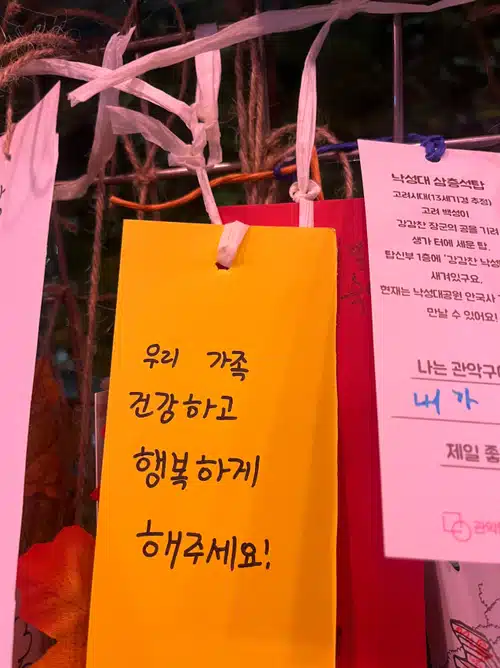 우리 가족
건강하고
행복하게
해주세요!
낙성대 삼층석탑
고려시대(13세기경 추정)
고려 백성이
강감찬 장군의 공을 기려
생가 터에 세운 탑.
탑신부 1층에 '강감찬 낙성
새겨있구요.
현재는 낙성대공원 안국사
만날 수 있어요!
나는 관악구
내가
제일 좋
관악